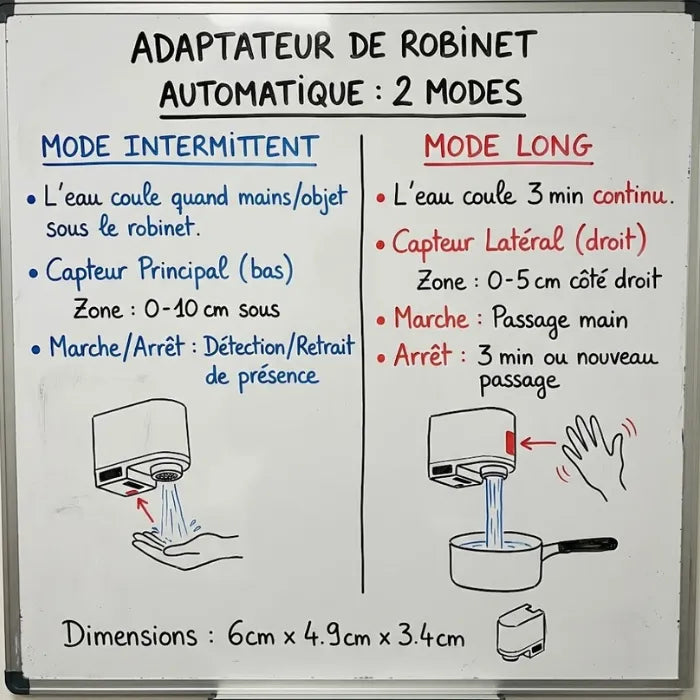 ADAPTATEUR DE ROBINET
AUTOMATIQUE : 2 MODES
MODE INTERMITTENT
• L'eau coule quand mains/objet
sous le robinet.
• Capteur Principal (bas)
Zone : 0-10 cm sous
• Marche/Arrêt : Détection/Retrait
de présence
MODE LONG
• L'eau coule 3 min continu.
• Capteur Latéral (droit)
Zone : 0-5 cm côté droit
• Marche : Passage main
• Arrêt : 3 min ou nouveau
passage
Dimensions : 6cm x 4.9cm x 3.4cm